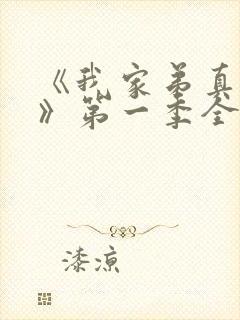 《我家弟真
》第一季全
漆凉